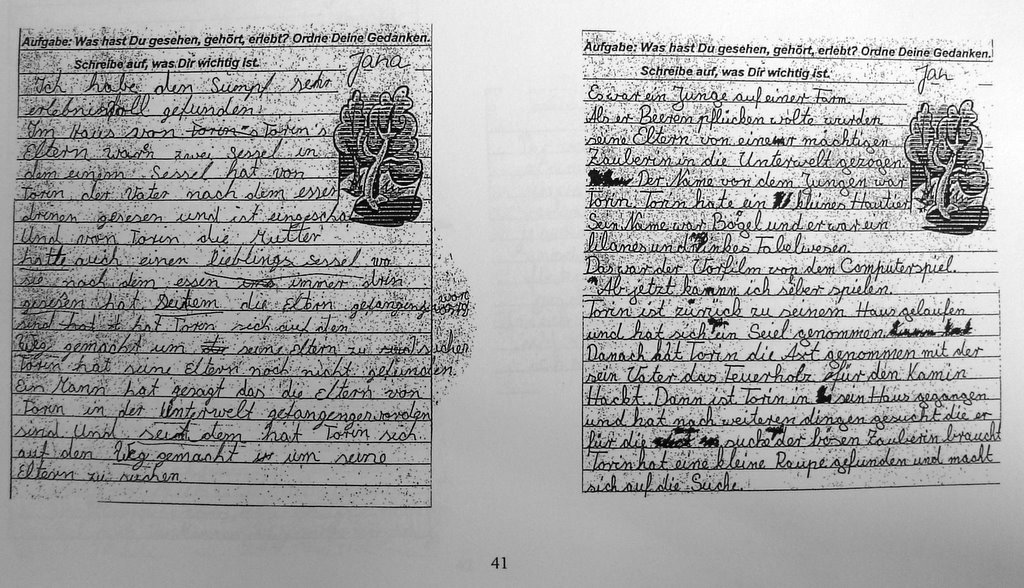 Aufgabe: Was hast Du gesehen, gehört, erlebt? Ordne Deine Gedanken.
Schreibe auf, was Dir wichtig ist.
Jana
Ich habe den Sumpf sehr
erlebnisvoll gefunden
Im Haus von Torin s Torin's
Eltern waren zwei Sessel in
dem einem Sessel hat von
Torin der Vater nach dem essen
drinen gesesen und ist
Und von Torin die Mutter
hatte auch einen lieblings sessel wo
sie nach dem essen immer drin
gesesen hat Seitem die Eltern
sind hat Torin sich auf den
Weg gemacht um seine Eltern zu suchen
Torin hat seine Eltern noch nicht gefunden
Ein Mann hat gesagt das die Eltern von
Torin in der Unterwelt
sind Und seit dem hat Torin sich
auf den Weg gemacht um seine
Eltern zu suchen
Aufgabe: Was hast Du gesehen, gehört, erlebt? Ordne Deine Gedanken.
Schreibe auf, was Dir wichtig ist.
Jan
Es war ein Junge auf einer Farm.
Als er Beeren pflücken wolte wurden
seine Eltern von einer mächtigen
Zauberin in die Unterwelt gezogen.
Der Name von dem Jungen war
Torin. Torin hate ein kleines Haustier
Sein Name war Bögel und er war ein
lilanes und Fabelwesen.
Das war der Vorfilm von dem Computerspiel.
Ab jetzt kann ich selber spielen.
Torin ist zurück zu seinem Haus gelaufen
und hat sich ein Seiel genommen.
Danach hat Torin die Axt genommen mit der
sein Vater das Feuerholz für den Kamin
Hackt. Dann ist Torin in sein Haus gegangen
und hat nach weiteren dingen gesucht die er
für die suche der bösen Zauberin braucht
Torin hat eine kleine Raupe gefunden und macht
sich auf die Suche.
41